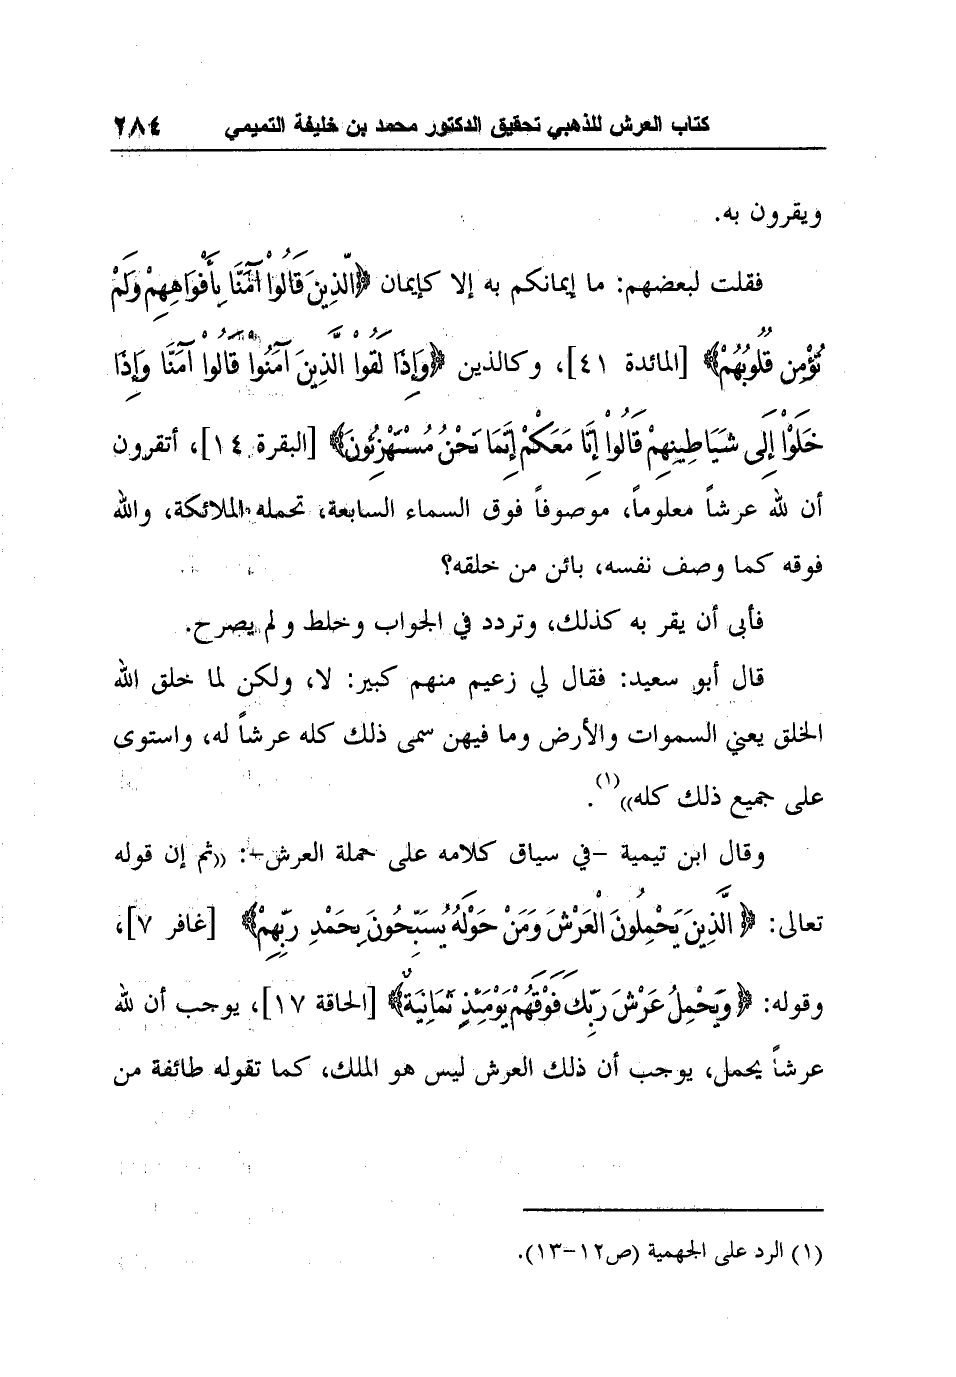 كتاب العرش للذهبي تحقيق الدكتور محمد بن خليفة التميمي ٢٨٤
ويقرون به.
فقلت لبعضهم: ما إيمانكم به إلا كإيمان ﴿الَّذِينَ قَالُواْ آمَنَّا بِأَفْوَاهِهِمْ وَلَمْ
تُؤْمِن قُلُوبُهُمْ﴾ [المائدة ٤١]، وكالذين ﴿وَإِذَا لَقُوا الَّذِينَ آمَنُواْ قَالُواْ آمَنَّا وَإِذَا
خَلَوْاْ إِلَى شَيَاطِينِهِمْ قَالُواْ إِنَّا مَعَكُمْ إِنَّمَا نَحْنُ مُسْتَهْزِئُونَ﴾ [البقرة ١٤]، أتقرون
أن لله عرشاً معلوماً، موصوفاً فوق السماء السابعة، تحمله الملائكة، والله
فوقه كما وصف نفسه، بائن من خلقه؟
فأبى أن يقر به كذلك، وتردد في الجواب وخلط ولم يصرح.
قال أبو سعيد: فقال لي زعيم منهم كبير: لا، ولكن لما خلق الله
الخلق يعني السموات والأرض وما فيهن سمى ذلك كله عرشاً له، واستوى
على جميع ذلك كله))(١).
وقال ابن تيمية -في سياق كلامه على حملة العرش-: ((ثم إن قوله
تعالى: ﴿الَّذِينَ يَحْمِلُونَ الْعَرْشَ وَمَنْ حَوْلَهُ يُسَبِّحُونَ بِحَمْدِ رَبِّهِمْ﴾ [غافر ٧]،
وقوله: ﴿وَيَحْمِلُ عَرْشَ رَبِّكَ فَوْقَهُمْ يَوْمَئِذٍ ثَمَانِيَةٌ﴾ [الحاقة ١٧]، يوجب أن لله
عرشاً يحمل، يوجب أن ذلك العرش ليس هو الملك، كما تقوله طائفة من
(١) الرد على الجهمية (ص١٢-١٣).